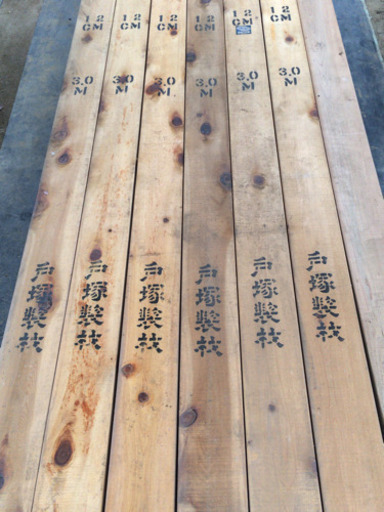 12
CM
3.0
M
戸塚製材
12
CM
3.0
M
戸塚製材
12
CM
3.0
M
戸塚製材
12
CM
3.0
M
戸塚製材
12
CM
3.0
M
戸塚製材
12
CM
3.0
M
戸塚製材